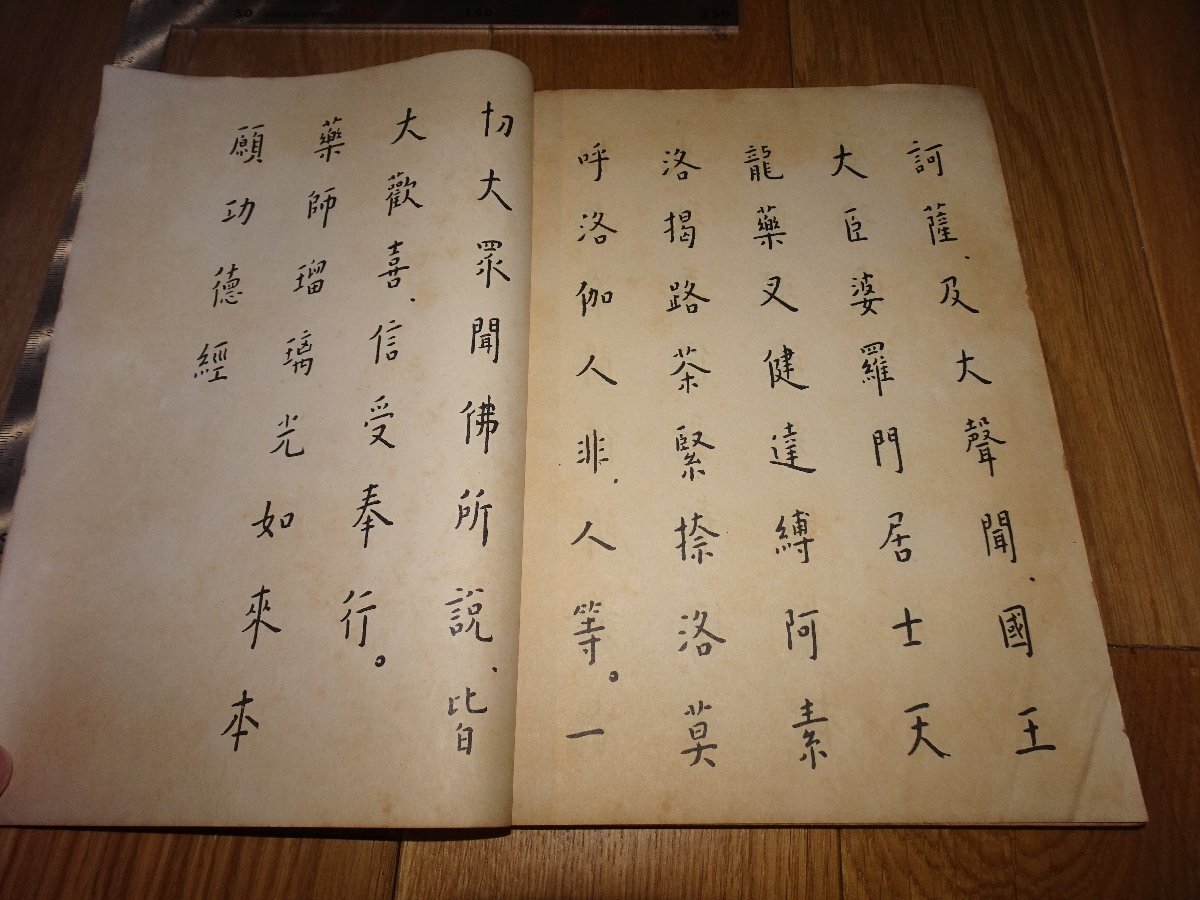 訶薩、及大聲聞、國王
大臣婆羅門居士天
龍藥叉健達縛阿素
洛揭路茶緊捺洛莫
呼洛伽人非、人等。一
切大眾聞佛所說、皆
大歡喜、信受奉行。
藥師瑠璃光如來本
願功德經
50 100 150 200 250